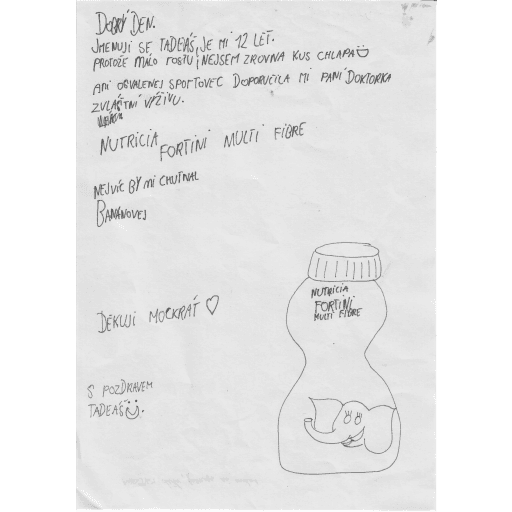 DOBRÝ DEN.
JMENUJI SE TADEÁŠ, JE MI 12 LET.
PROTOŽE MÁLO ROSTU, NEJSEM ZROVNA KUS CHLAPA
ANI OSVALENEJ SPORTOVEC DOPORUČILA MI PANÍ DOKTORKA
ZVLÁŠTNÍ VÝŽIVU.
NUTRICIA FORTINI MULTI FIBRE
NEJVÍC BY MI CHUTNAL
BANÁNOVEJ
NUTRICIA
FORTINI
MULTI FIBRE
DĚKUJI MOCKRÁT ♡
S POZDRAVEM
TADEÁŠ.